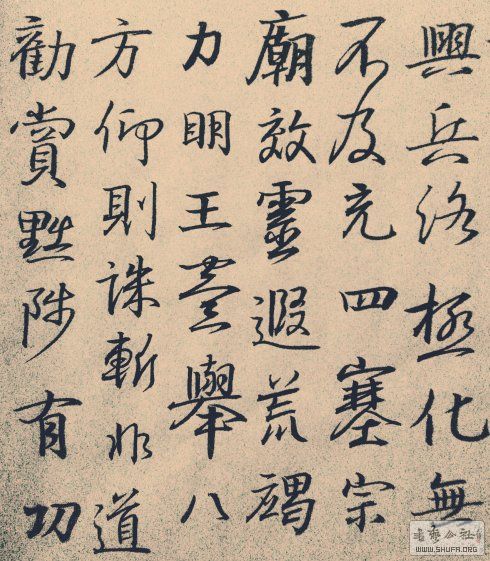 興兵極化無
不及充四塞宗
廟效靈遐荒竭
力明王臺舉八
方仰則誅斬非道
勸賞黜陟有功
書藝公社
WWW.SHUFA.ORG